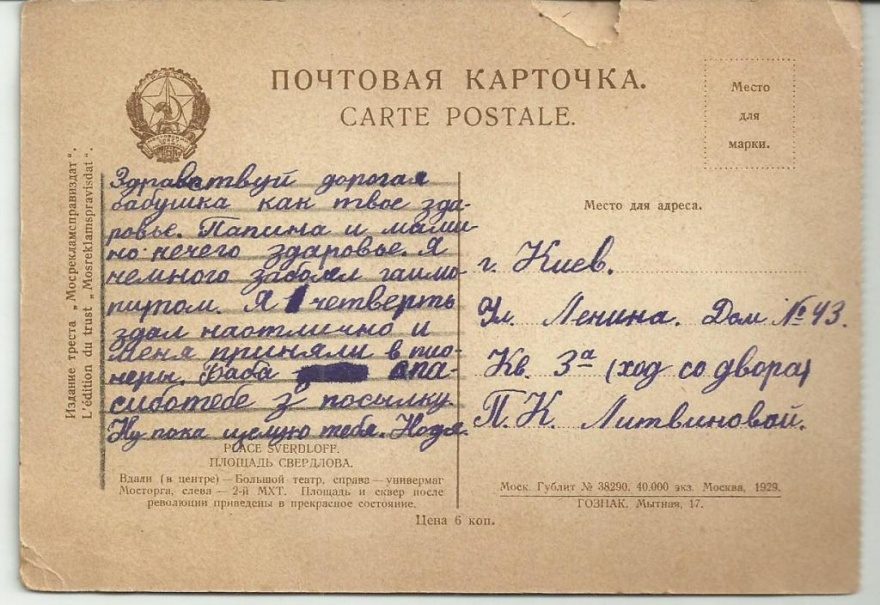 ПОЧТОВАЯ КАРТОЧКА.
CARTE POSTALE.
Место
для
марки.
Издание треста „Мосрекламсправиздат“.
L'édition du trust „Mosreklamspravisdat“.
Здравствуй дорогая
бабушка как твое здо-
ровье. Папина и мами-
но нечего здаровье. Я
немного заболел гаймо-
ритом. Я 1 четверть
здал наотлично и
меня приняли в пио-
неры. Баба спа-
сиботебе за посылку
Ну пока целую тебя.
Место для адреса.
г. Киев.
Ул. Ленина. Дом № 43.
Кв. 3а (ход со двора)
П. К. Литвиновой.
PLACE SVERDLOFF.
ПЛОЩАДЬ СВЕРДЛОВА.
Вдали (в центре) — Большой театр, справа — универмаг
Мосторга, слева — 2-й МХТ. Площадь и сквер после
революции приведены в прекрасное состояние.
Моск. Гублит № 38290. 40.000 экз. Москва, 1929.
ГОЗНАК. Мытная, 17.
Цена 6 коп.